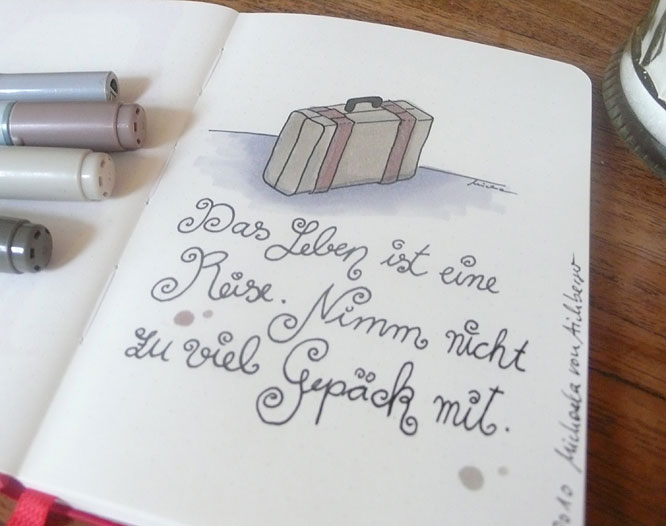 Das Leben ist eine
Reise. Nimm nicht
zu viel Gepäck mit.
2010 Michaela von